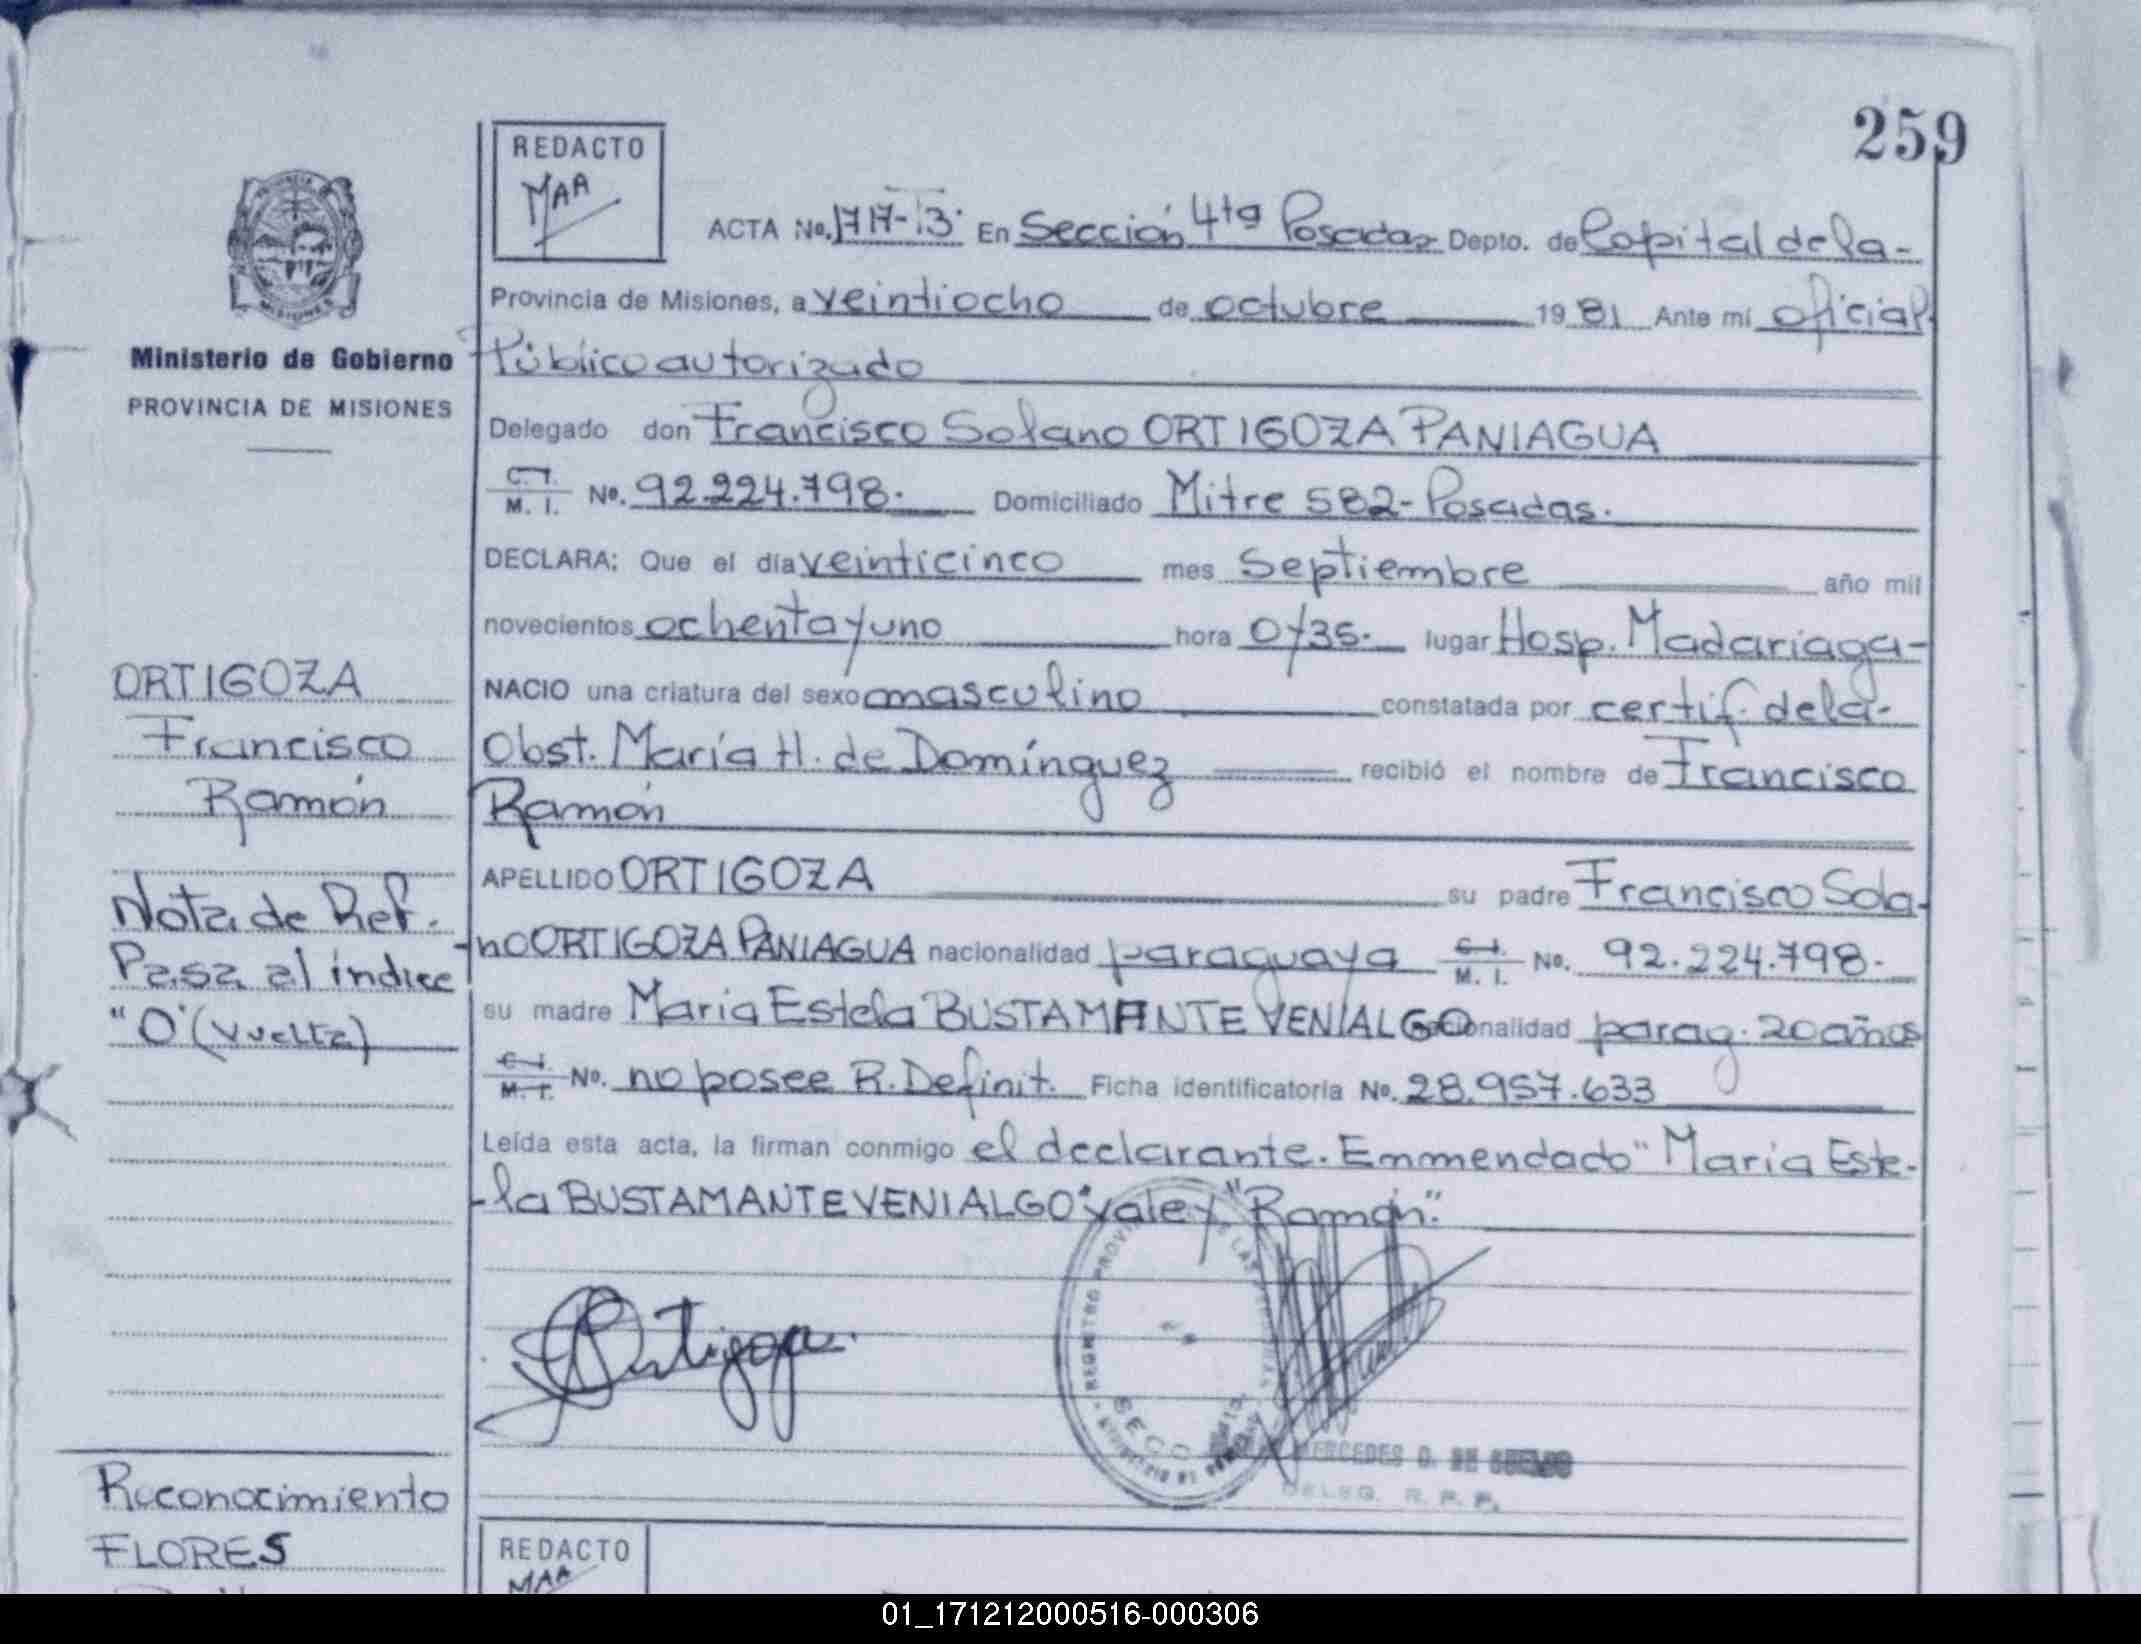 259
REDACTO
MAA
ACTA No. 1717-13· En Sección 4ta Posadas Depto. de Capital de la-
Provincia de Misiones, a veintiocho de octubre 1981 Ante mí oficial
Público autorizado
Delegado don Francisco Solano ORTIGOZA PANIAGUA
C.I. M. I. No. 92.224.798. Domiciliado Mitre 582-Posadas.
DECLARA: Que el día veinticinco mes Septiembre año mil
novecientos ochenta y uno hora 0y35. lugar Hosp. Madariaga-
NACIO una criatura del sexo masculino constatada por certif. de la-
Obst. María H. de Domínguez recibió el nombre de Francisco
Ramón
APELLIDO ORTIGOZA su padre Francisco Sola-
-no ORTIGOZA PANIAGUA nacionalidad paraguaya C.I. M. I. No. 92.224.798.
su madre Maria Estela BUSTAMANTE VENIALGO nacionalidad parag. 20 años
C.I. M. I. No. no posee R. Definit. Ficha identificatoria No. 28.957.633
Leída esta acta, la firman conmigo el declarante. Emmendado "Maria Este-
-la BUSTAMANTE VENIALGO" vale y "Ramón"
Ortigoza
REGISTRO PROV
SECC
MERCEDES D. DE
DELEG. R. P. P.
PROVINCIA
MISIONES
Ministerio de Gobierno
PROVINCIA DE MISIONES
ORTIGOZA
Francisco
Ramón
Nota de Ref.
Pasa al índice
"O" (vuelta)
Reconocimiento
FLORES
REDACTO
MAA
01_171212000516-000306